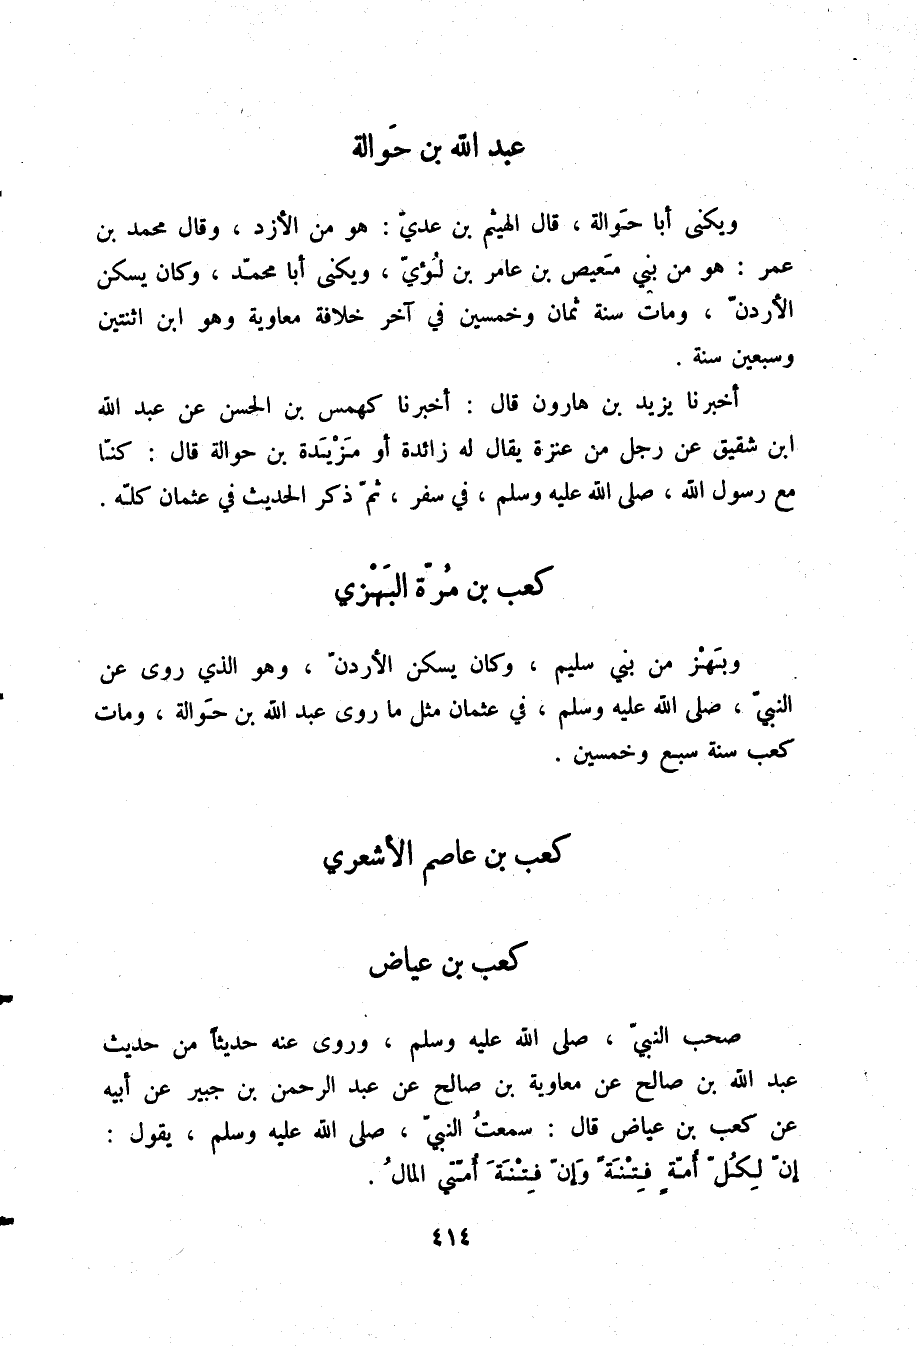 عبد الله بن حَوالة
ويكنى أبا حَوالة ، قال الهيثم بن عديّ : هو من الأزد ، وقال محمد بن
عمر : هو من بني مَعيص بن عامر بن لُؤيّ ، ويكنى أبا محمّد ، وكان يسكن
الأردنّ ، ومات سنة ثمان وخمسين في آخر خلافة معاوية وهو ابن اثنتين
وسبعين سنة .
أخبرنا يزيد بن هارون قال : أخبرنا كهمس بن الحسن عن عبد الله
ابن شقيق عن رجل من عنزة يقال له زائدة أو مَزْيَدة بن حوالة قال : كنّا
مع رسول الله ، صلى الله عليه وسلم ، في سفر ، ثمّ ذكر الحديث في عثمان كلّه .
كعب بن مُرّة البَهْزي
وبَهْز من بني سليم ، وكان يسكن الأردنّ ، وهو الذي روى عن
النبيّ ، صلى الله عليه وسلم ، في عثمان مثل ما روى عبد الله بن حَوالة ، ومات
كعب سنة سبع وخمسين .
كعب بن عاصم الأشعري
كعب بن عياض
صحب النبيّ ، صلى الله عليه وسلم ، وروى عنه حديثاً من حديث
عبد الله بن صالح عن معاوية بن صالح عن عبد الرحمن بن جبير عن أبيه
عن كعب بن عياض قال : سمعتُ النبيّ ، صلى الله عليه وسلم ، يقول :
إنّ لِكُلّ أُمّةٍ فِتْنَةً وَإنّ فِتْنَةَ أُمّتي المالُ .
٤١٤